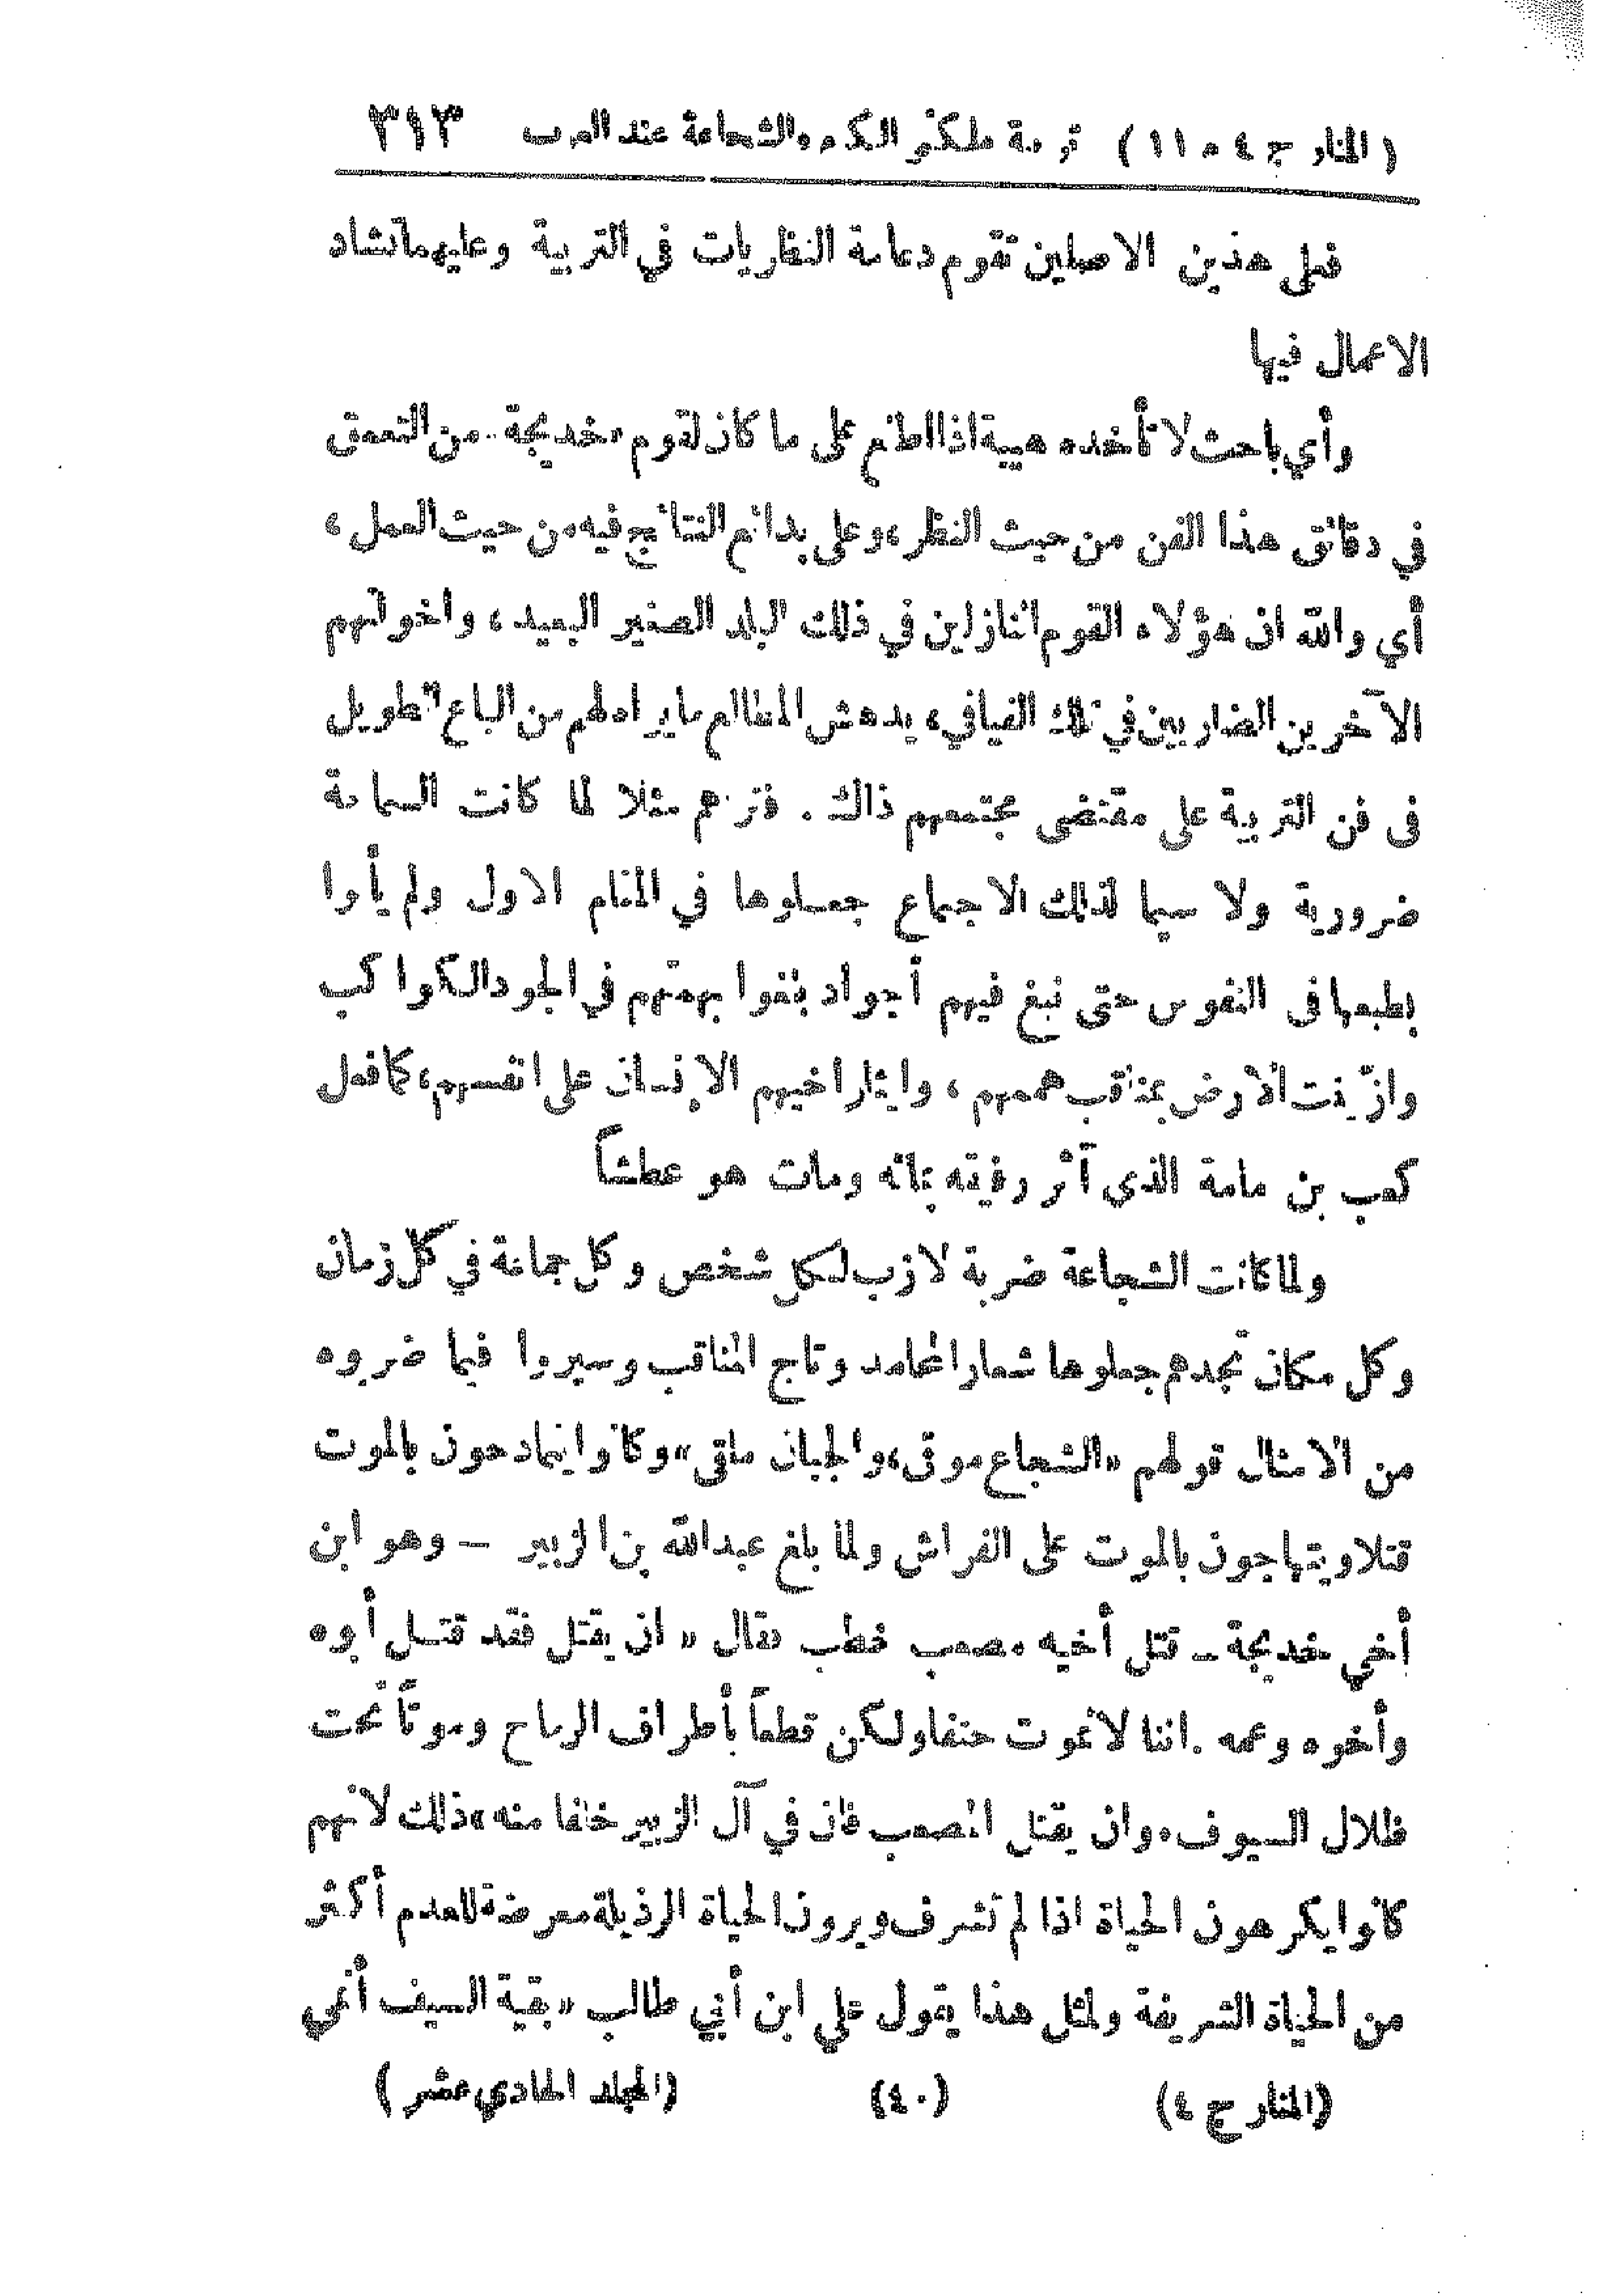 (المنار ج ٤ م ١١) تربية ملكتي الكرم والشجاعة عند العرب ٣١٣
فعلى هذين الاصلين تقوم دعامة النظريات في التربية وعليهما تشاد
الاعمال فيها
وأي باحث لا تأخذه هيبة اذا اطلع على ما كان لقوم «خديجة» من التعمق
في دقائق هذا الفن من حيث النظر، وعلى بدائع النتائج فيه من حيث العمل،
أي والله ان هؤلاء القوم النازلين في ذلك البلد الصغير البعيد، واخوانهم
الآخرين الضاربين في تلك الفيافي، يدهش المطالع ما يراه لهم من الباع الطويل
في فن التربية على مقتضى مجتمعهم ذاك. فتراهم مثلا لما كانت السماحة
ضرورية ولا سيما لذلك الاجتماع جعلوها في المقام الاول ولم يألوا
بطبعها في النفوس حتى نبغ فيهم أجواد بلغوا بهمتهم في الجود الكواكب
وازّينت الارض بمناقب هممهم، وايثار اخيهم الإنسان على انفسهم، كما فعل
كعب بن مامة الذي آثر رفيقه بمائه ومات هو عطشاً
ولما كانت الشجاعة ضربة لازب لكل شخص وكل جماعة في كل زمان
وكل مكان تجدهم جعلوها شعار المحامد وتاج المناقب وسيروا فيما ضربوه
من الامثال قولهم «الشجاع موقى، والجبان ملقى» وكانوا يتمادحون بالموت
قتلا ويتهاجون بالموت على الفراش ولما بلغ عبدالله بن الزبير – وهو ابن
أخي خديجة – قتل أخيه مصعب خطب فقال «ان يقتل فقد قتل أبوه
وأخوه وعمه. اننا لا نموت حتفا ولكن قطعاً بأطراف الرماح وموتاً تحت
ظلال السيوف، وان يقتل المصعب فان في آل الزبير خلفا منه» ذلك لانهم
كانوا يكرهون الحياة اذا لم تشرف ويرون الحياة الرذيلة معرضة للعدم أكثر
من الحياة الشريفة ولمثل هذا يقول علي ابن أبي طالب «بقية السيف أنمى
(المنار ج ٤) (٤٠) (المجلد الحادي عشر)